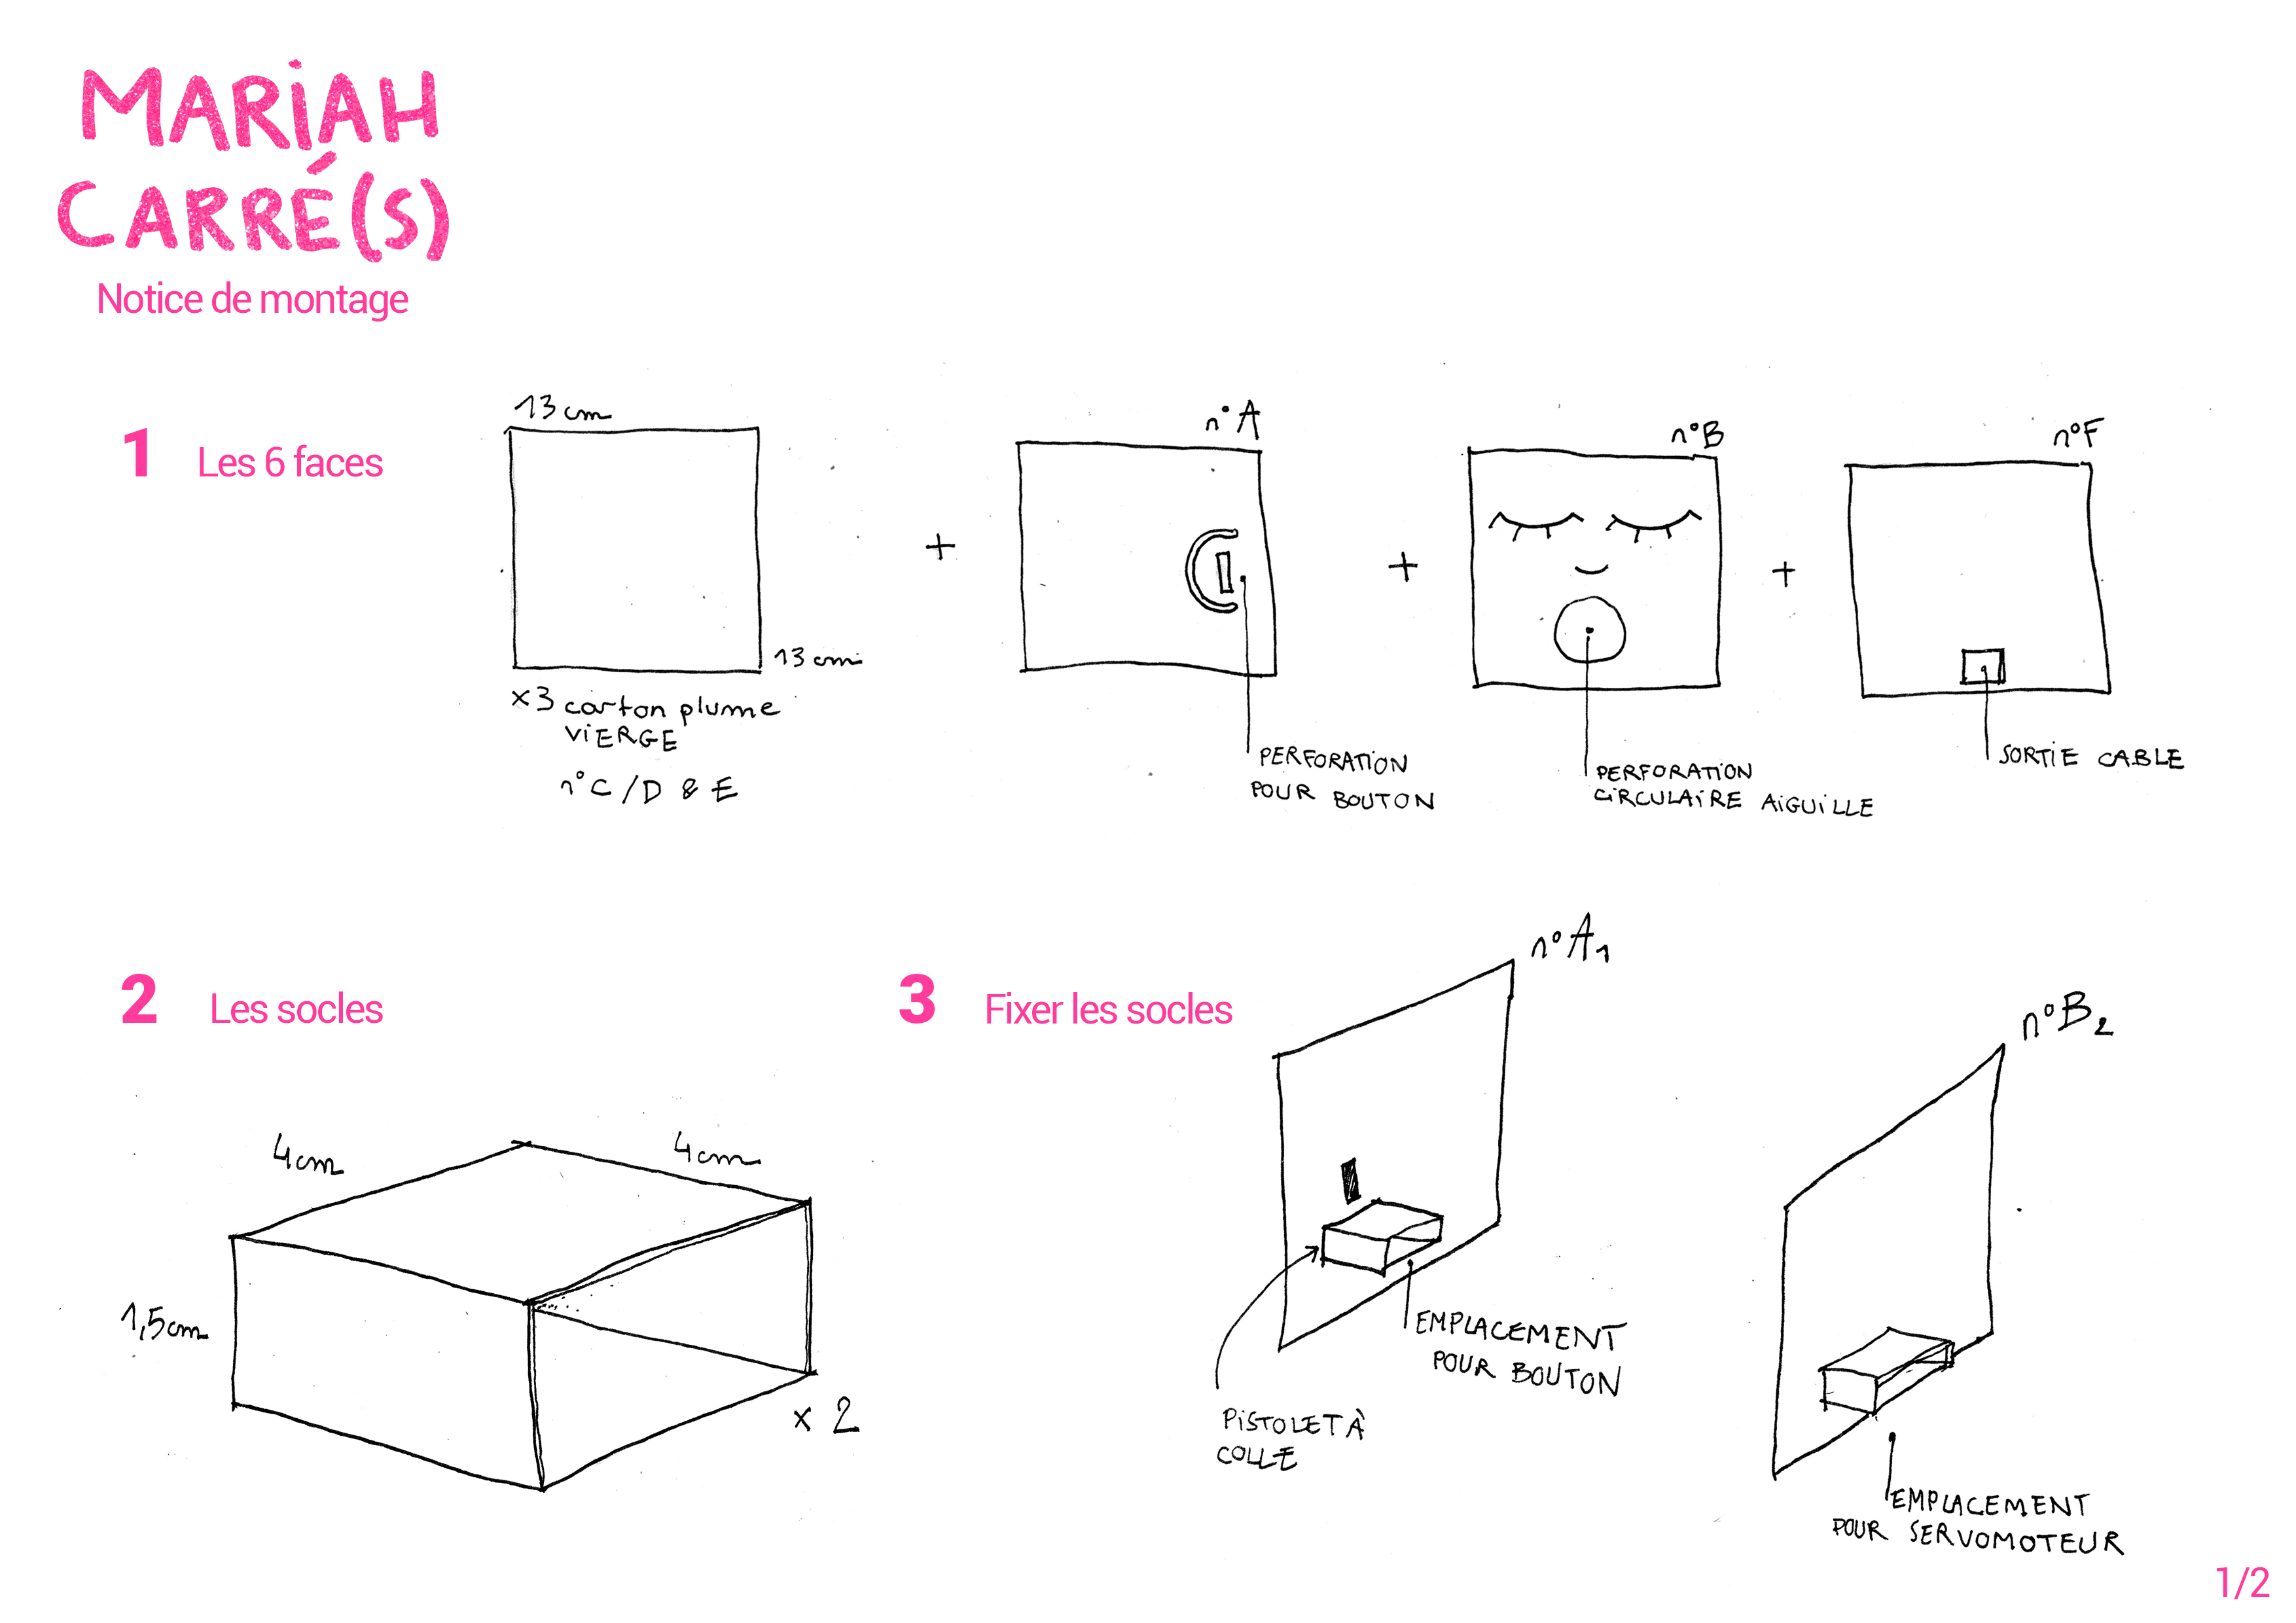 MARiAH
CARRÉ(S)
Notice de montage
1 Les 6 faces
13 cm
13 cm
x3 carton plume
ViERGE
n°C/D & E
+
n°A
PERFORATiON
POUR BOUTON
+
n°B
PERFORATiON
CiRCULAiRE AiGUiLLE
+
n°F
SORTiE CABLE
2 Les socles
4cm
4cm
1,5cm
x 2
3 Fixer les socles
n°A1
EMPLACEMENT
POUR BOUTON
PiSTOLET À
COLLE
n°B2
EMPLACEMENT
POUR SERVOMOTEUR
1/2